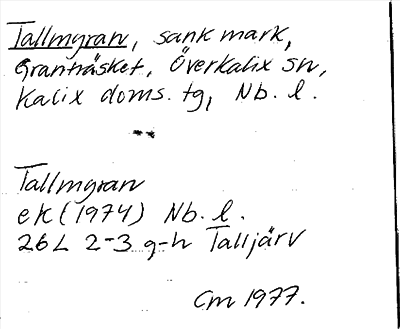 Tallmyran, sank mark,
Granträsket, Överkalix sn,
Kalix doms. tg, Nb. l.
Tallmyran
ek (1974) Nb. l.
26L 2-3 g-h Talljärv
Cm 1977.